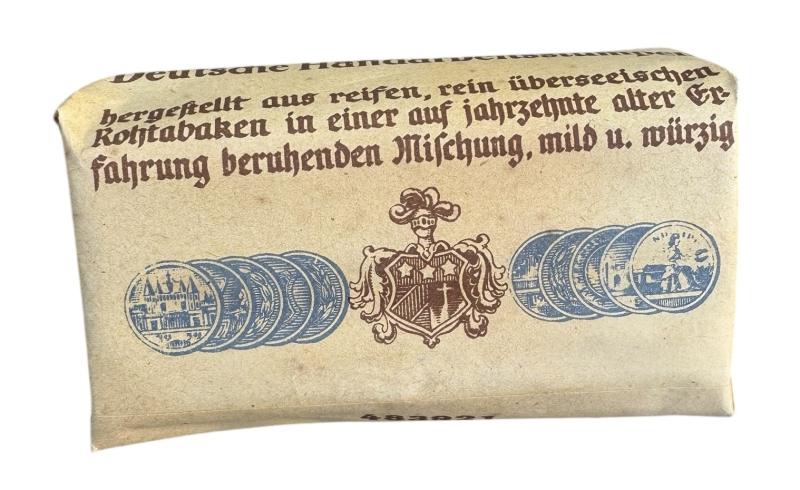 Deutsche Handarbeitsstumpen
hergestellt aus reifen, rein überseeischen
Rohtabaken in einer auf jahrzehnte alter Er-
fahrung beruhenden Mischung, mild u. würzig
483021